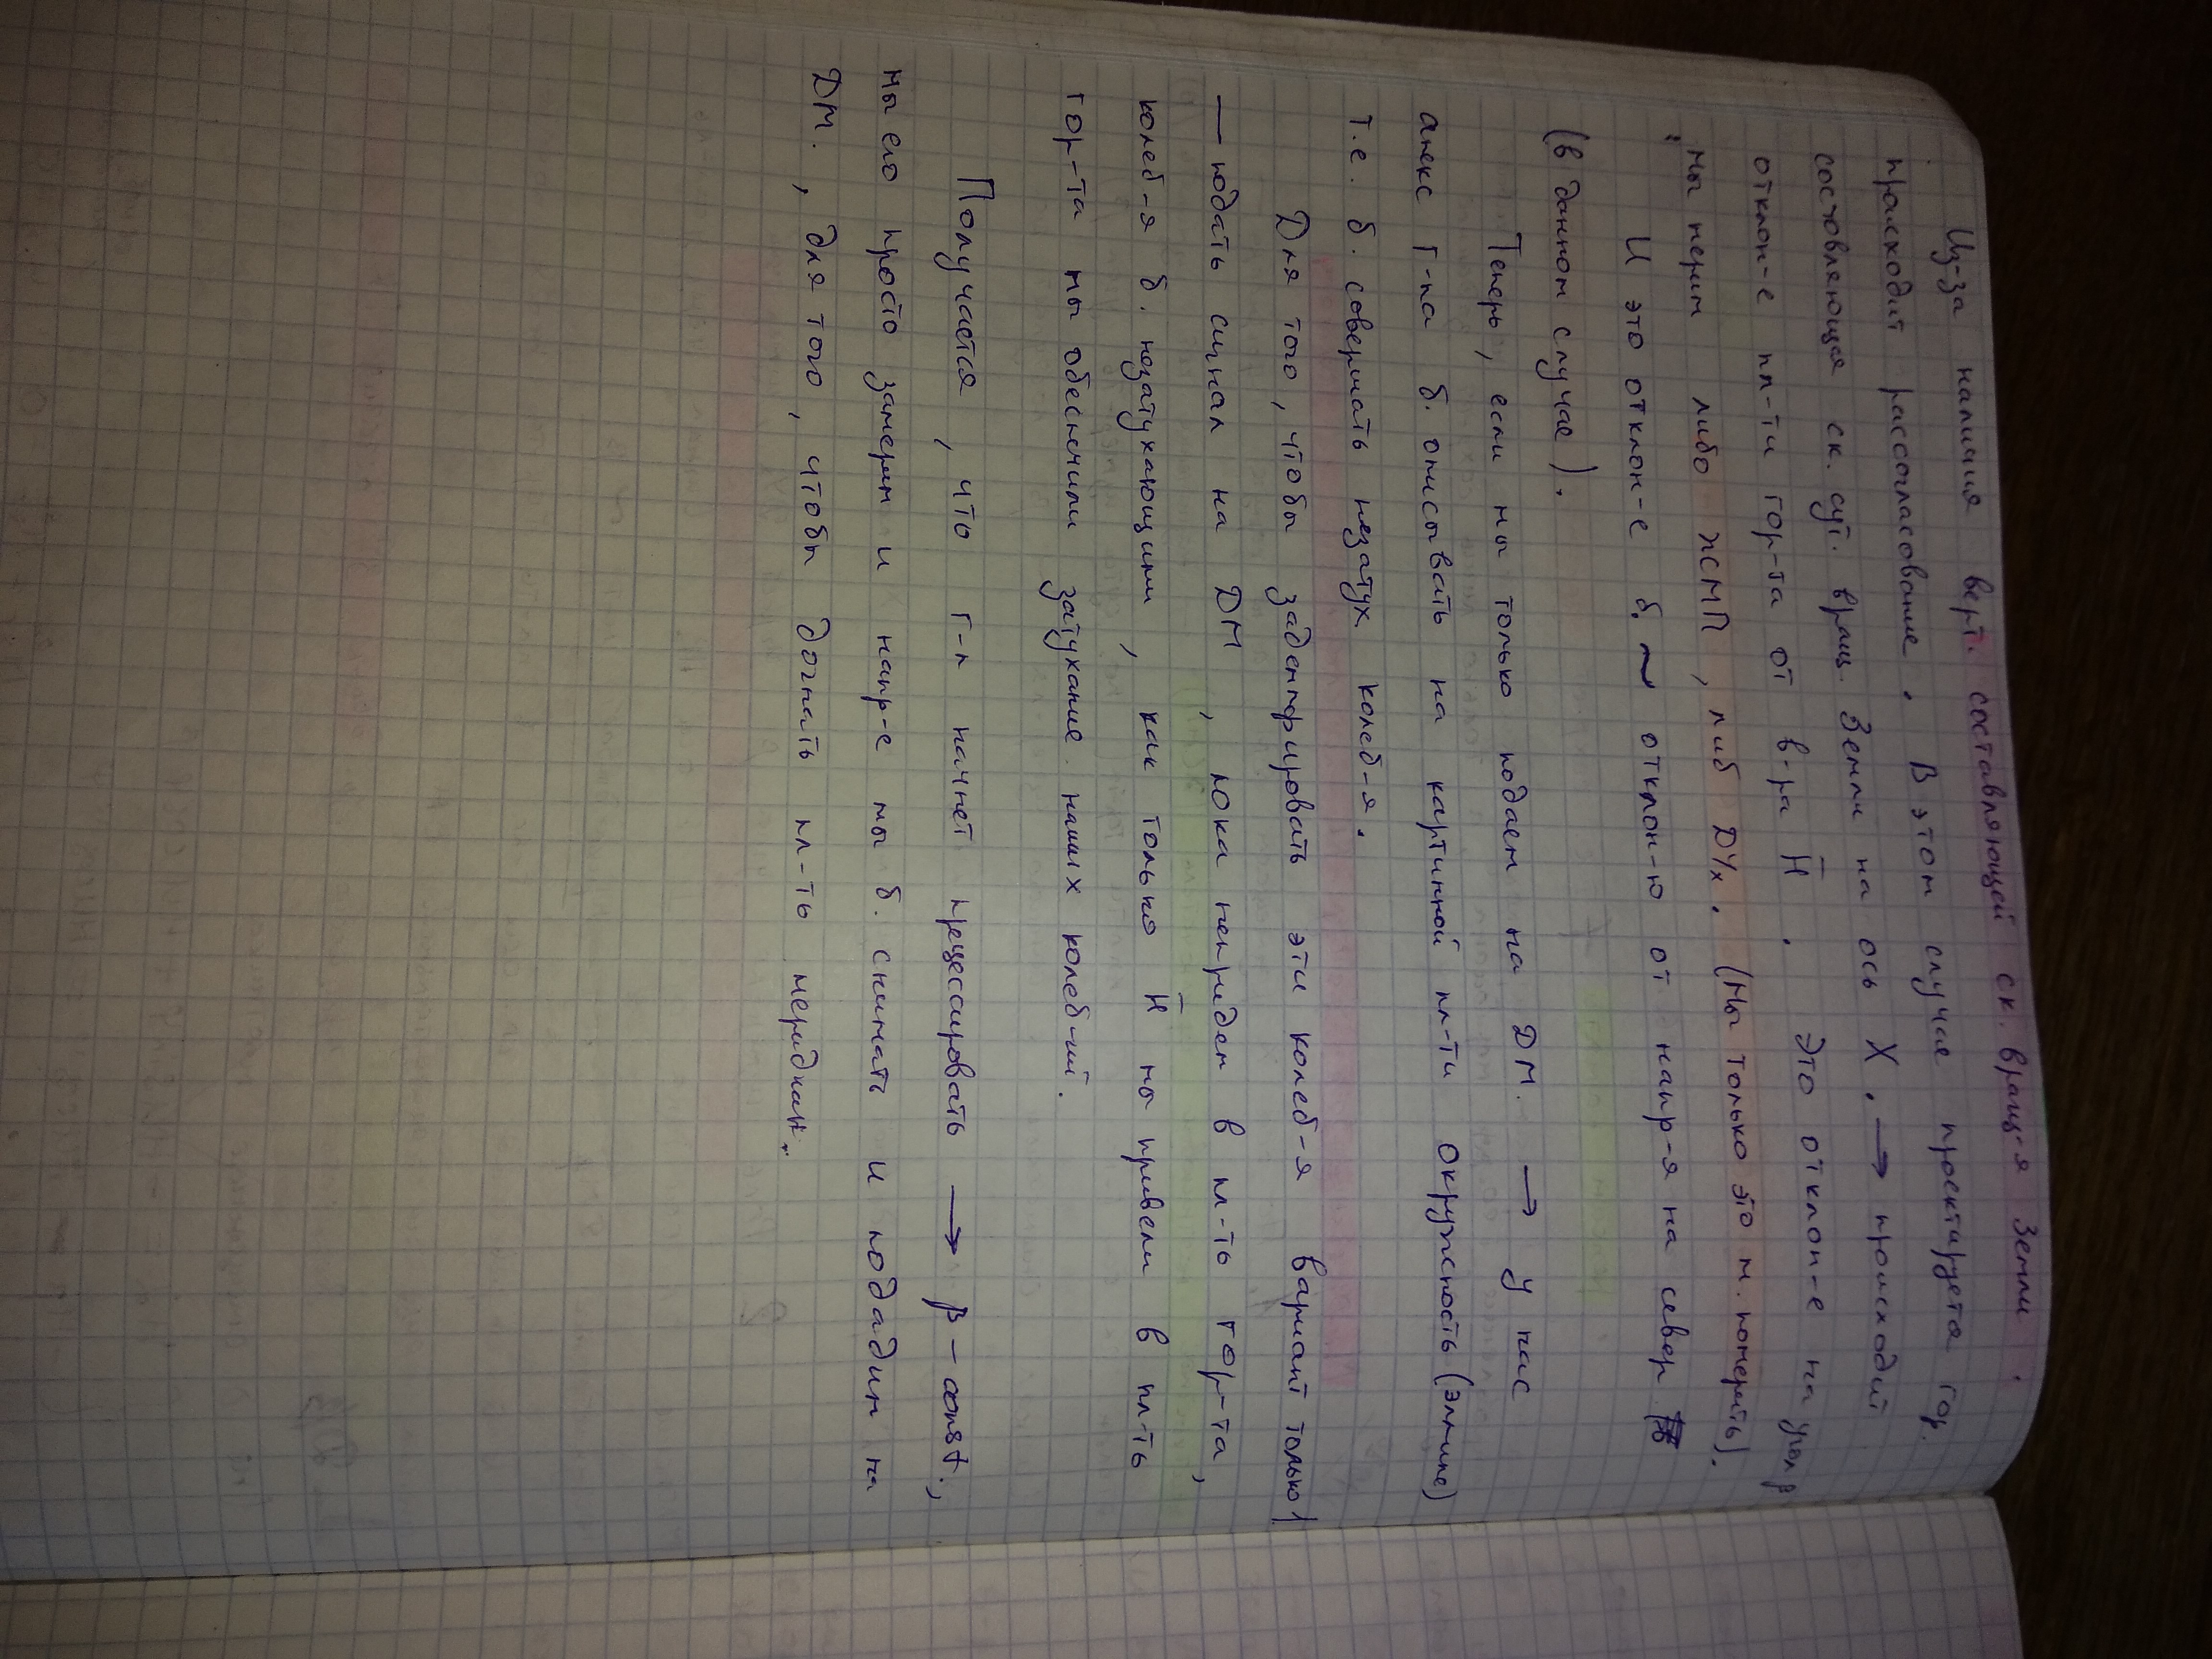 Из-за наличия верт. составляющей ск. вращ-я Земли.
происходит рассогласование. В этом случае проектируется гор.
состовляющая ск. сут. вращ. Земли на ось X. → происходит
отклон-е пл-ти гор-та от в-ра H̄. Это отклон-е на угол β
мы мерим либо ЖМП, либ ДУх. (Мы только это м. померить).
И это отклон-е б. ~ отклон-ю от напр-я на север
(в данном случае).
Теперь, если мы только подаем на ДМ. → у нас
апекс г-па б. описывать на картинной пл-ти окружность (эллипс)
т.е. б. совершать незатух колеб-я.
Для того, чтобы задемпфировать эти колеб-я вариант только 1
— подать сигнал на ДМ, пока не придем в пл-ть гор-та,
колеб-я б. незатухающими, как только H̄ мы привели в пл-ть
гор-та мы обеспечили затухание наших колеб-ий.
Получается, что г-п начнет прецессировать → β - const.,
мы его просто замерим и напр-е мы б. снимать и подадим на
ДМ., для того, чтобы догнать пл-ть меридиан.